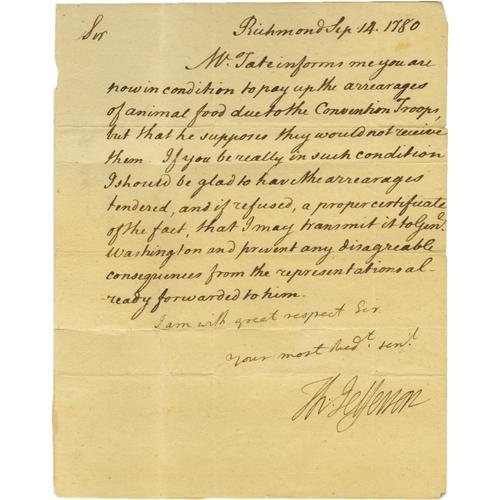 Sir Richmond Sep. 14. 1780
Mr. Tate informs me you are
now in condition to pay up the arrearages
of animal food due to the Convention Troops,
but that he supposes they would not receive
them. If you be really in such condition
I should be glad to have the arrearages
tendered, and if refused, a proper certificate
of the fact, that I may transmit it to Genl.
Washington and prevent any disagreable
consequences from the representations al-
ready forwarded to him.
I am with great respect Sir
Your most hedt. servt.
Th. Jefferson